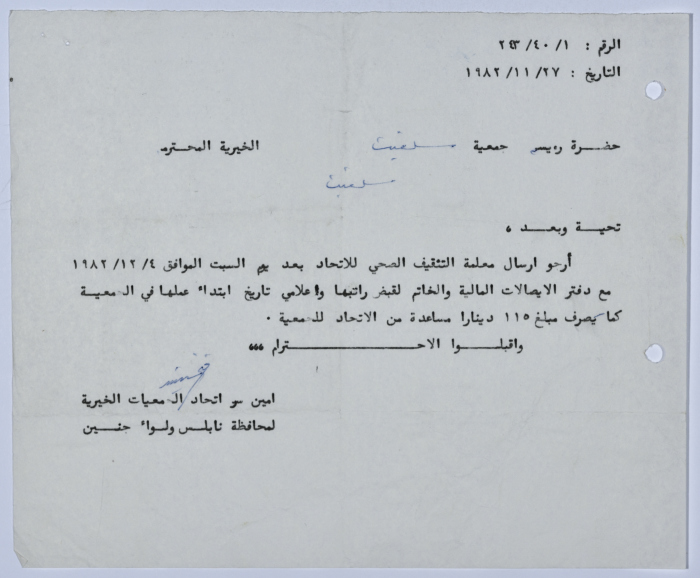 الرقم : ٢٤٣/٤٠/١
التاريخ : ١٩٨٢/١١/٢٧
حضرة رئيس جمعية سلفيت الخيرية المحترم
سلفيت
تحية وبعد ،
أرجو ارسال معلمة التثقيف الصحي للاتحاد بعد يوم السبت الموافق ١٩٨٢/١٢/٤
مع دفتر الايصالات المالية والخاتم لقبض راتبها واعلامي تاريخ ابتداء عملها في الجمعية
كما يصرف مبلغ ١١٥ دينارا مساعدة من الاتحاد للجمعية ٠
واقبلـــوا الاحـــــترام ،،،
امين سر اتحاد الجمعيات الخيرية
لمحافظة نابلس ولواء جنــين